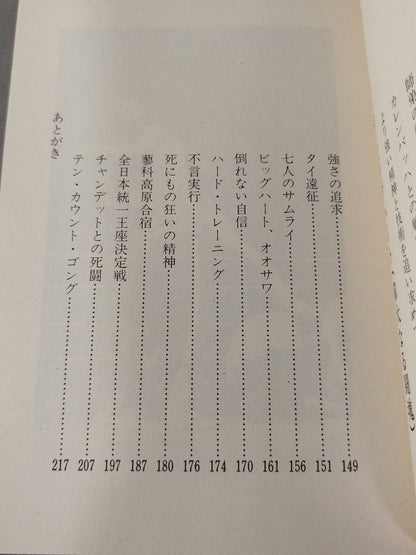 カレンバッハ
精神と技術を追い求め
強さの追求……149
タイ遠征……151
七人のサムライ……156
ビッグハート、オオサワ……161
倒れない自信……170
ハード・トレーニング……174
不言実行……176
死にもの狂いの精神……180
蓼科高原合宿……187
全日本統一王座決定戦……197
チャンデットとの死闘……207
テン・カウント・ゴング……217
あとがき